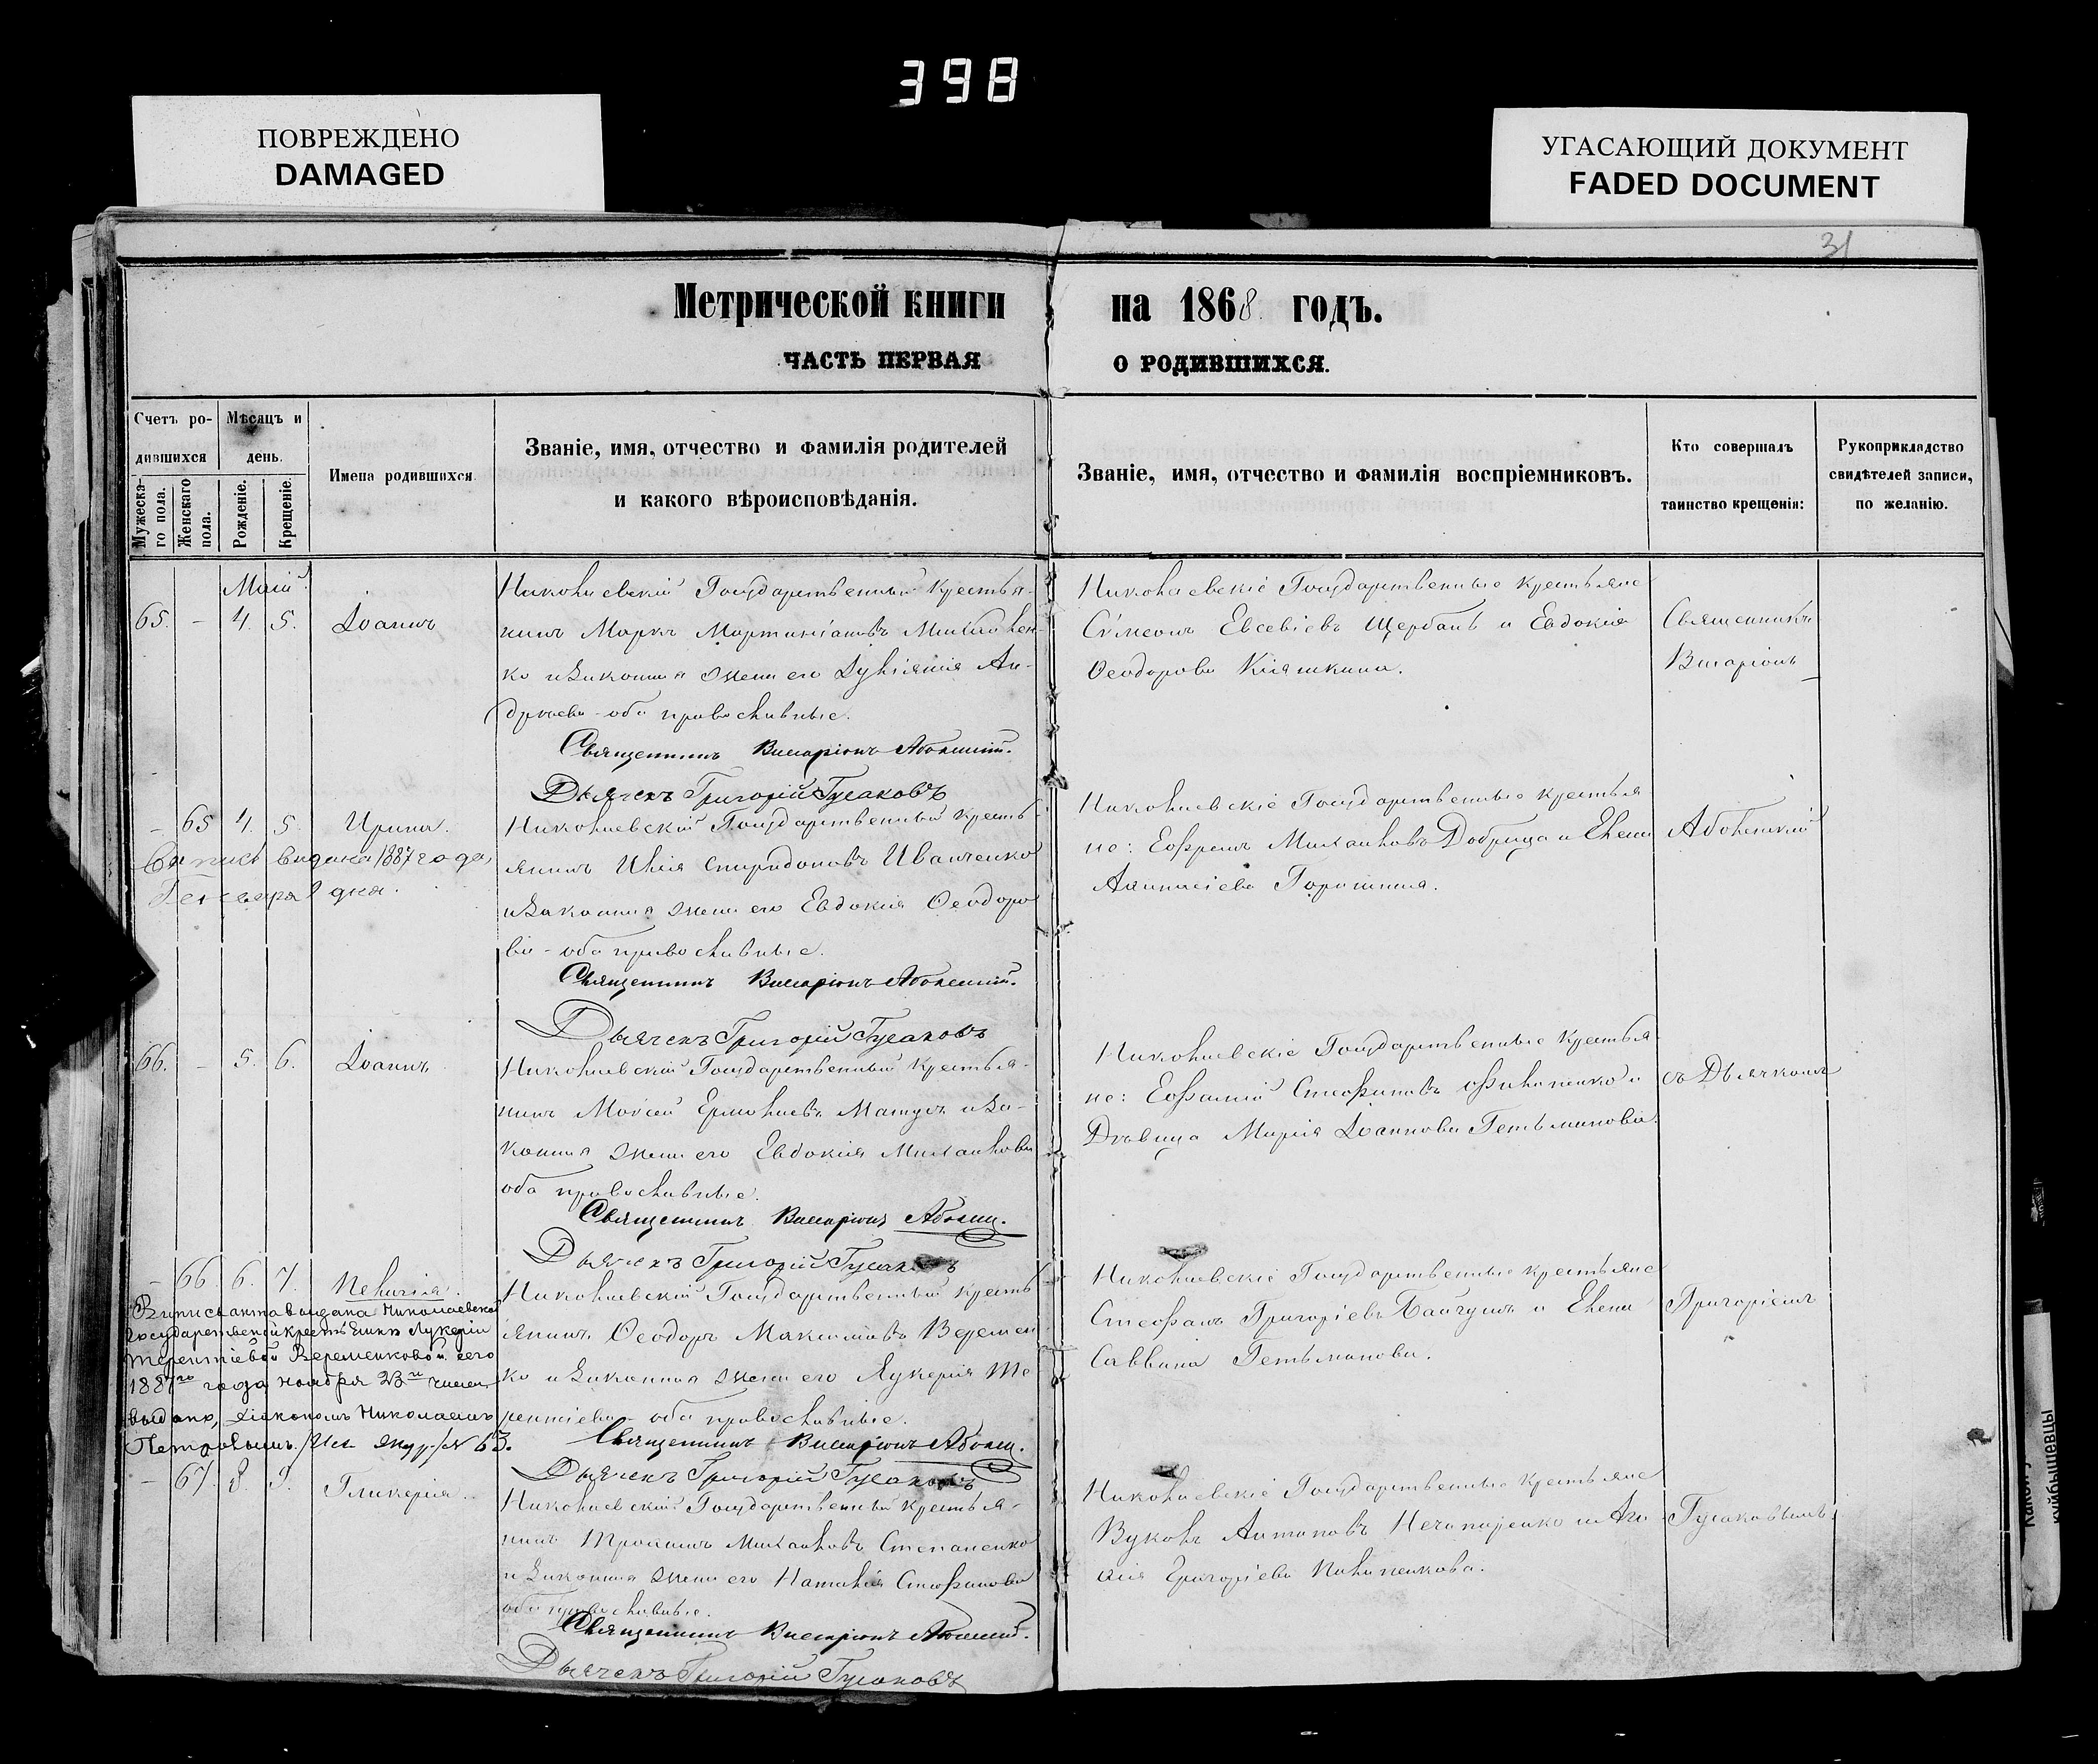 398
ПОВРЕЖДЕНО
DAMAGED
УГАСАЮЩИЙ ДОКУМЕНТ
FADED DOCUMENT
31
Метрической книги на 1868 годъ.
ЧАСТЬ ПЕРВАЯ О РОДИВШИХСЯ.
Счетъ ро-
дившихся
Мужеска-
го пола.
Женскаго
пола.
Мѣсяцъ и
день.
Рожденіе.
Крещеніе.
Имена родившихся.
Званіе, имя, отчество и фамилія родителей
и какого вѣроисповѣданія.
Званіе, имя, отчество и фамилія воспріемниковъ.
Кто совершалъ
таинство крещенія:
Рукоприкладство
свидѣтелей записи,
по желанію.
Маій
65. - 4. 5. Іоаннъ
Николаевскій Государственный крестья-
нинъ Маркъ Мартиніановъ
ко и законная жена его Ан-
дреева - оба православные.
Священникъ Виссаріонъ
Дьячекъ Григорій Гусаковъ
Николаевскіе Государственные крестьяне
Симеонъ Евсевіевъ Щербакъ и Евдокія
Ѳеодорова Кіяшкина.
Священникъ
Висаріонъ
- 65 4. 5. Ирина.
Выпись выдана 1887 года,
дня.
Николаевскій Государственный кресть-
янинъ Илія Спиридоновъ Иванченко
и законная жена его Евдокія Ѳеодоро
ва - оба православные.
Священникъ Виссаріонъ
Дьячекъ Григорій Гусаковъ
Николаевскіе Государственные крестья
не: Ефремъ Михаиловъ Добрица и Елена
66. - 5. 6. Іоаннъ
Николаевскій Государственный крестья-
нинъ Моисей Ермолаевъ Мацукъ и за-
конная жена его Евдокія Михаилова
оба православные.
Священникъ Виссаріонъ
Дьячекъ Григорій Гусаковъ
Николаевскіе Государственные крестья
не: Евѳамій Стефановъ Филипенко и
Дѣвица Марія Іоаннова Гетьманова.
съ Дьячкомъ
- 66. 6. 7. Пелагія.
Выпись акта выдана Николаевской
государственной крестьянкѣ Лукеріи
Терентіевой Веременковой сего
1887го года ноября 23го числа,
выдано, діакономъ Николаемъ
Петровымъ. /Исх. жур./ № 63.
Николаевскій Государственный кресть
янинъ Ѳеодоръ Максимовъ Веремен
ко и законная жена его Лукерія Те
рентіева - оба православные.
Священникъ Виссаріонъ
Дьячекъ Григорій Гусаковъ
Николаевскіе Государственные крестьяне
Стефанъ Григоріевъ и Елена
Саввина Гетьманова.
Григоріемъ
- 67. 8. 9. Гликерія.
Николаевскій Государственный крестья-
нинъ Трофимъ Михаиловъ Степаненко
и законная жена его Наталія Стефанова
оба православные.
Священникъ Виссаріонъ
Дьячекъ Григорій Гусаковъ
Николаевскіе Государственные крестьяне
Вуколъ Антоновъ Нечипоренко и Ага
ѳія Григоріева Пилипенкова.
Гусаковымъ.